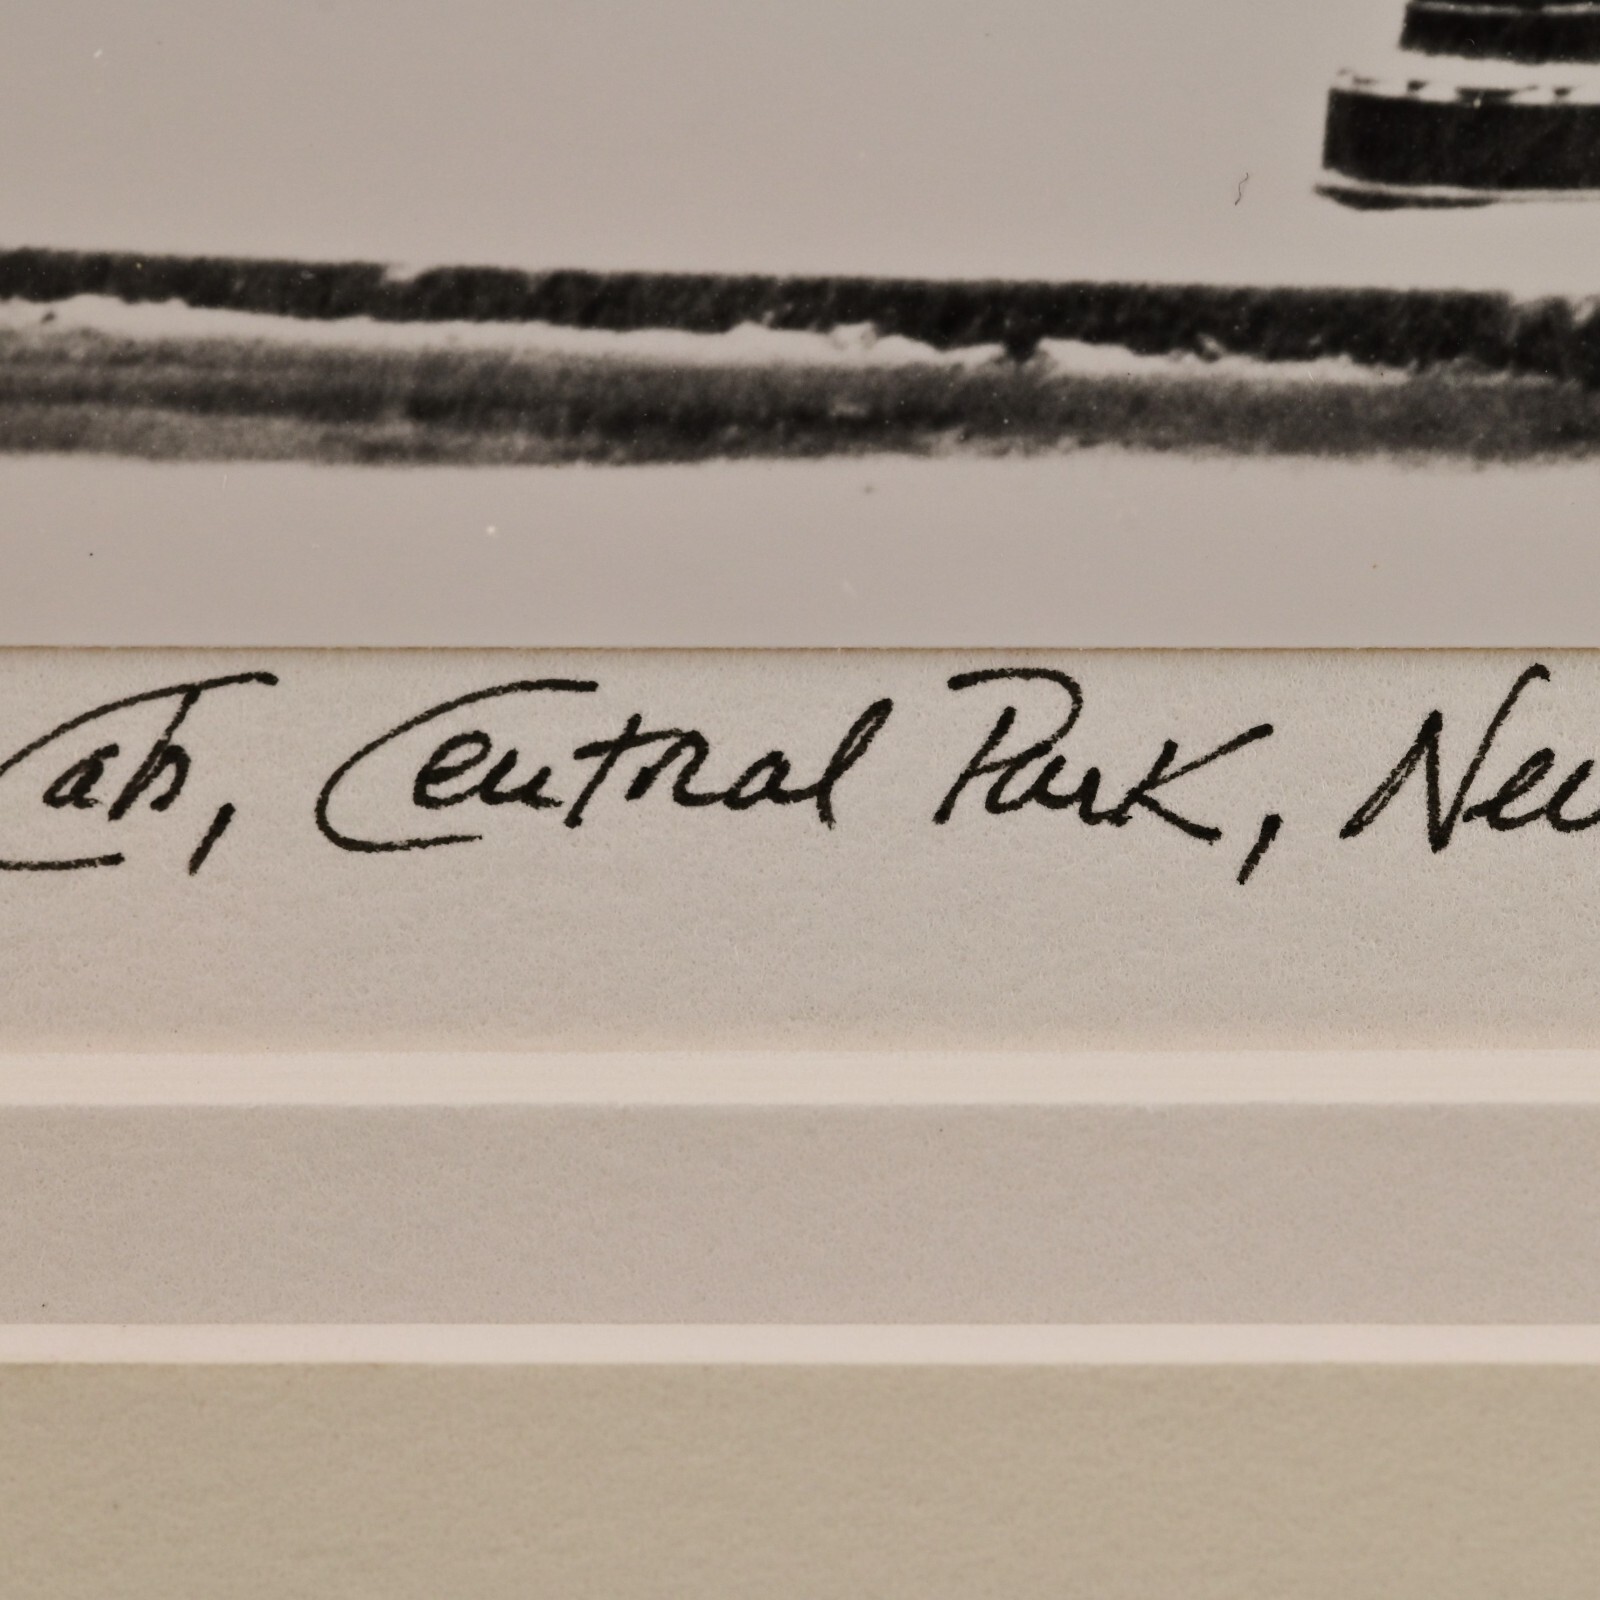 Cab, Central Park, New